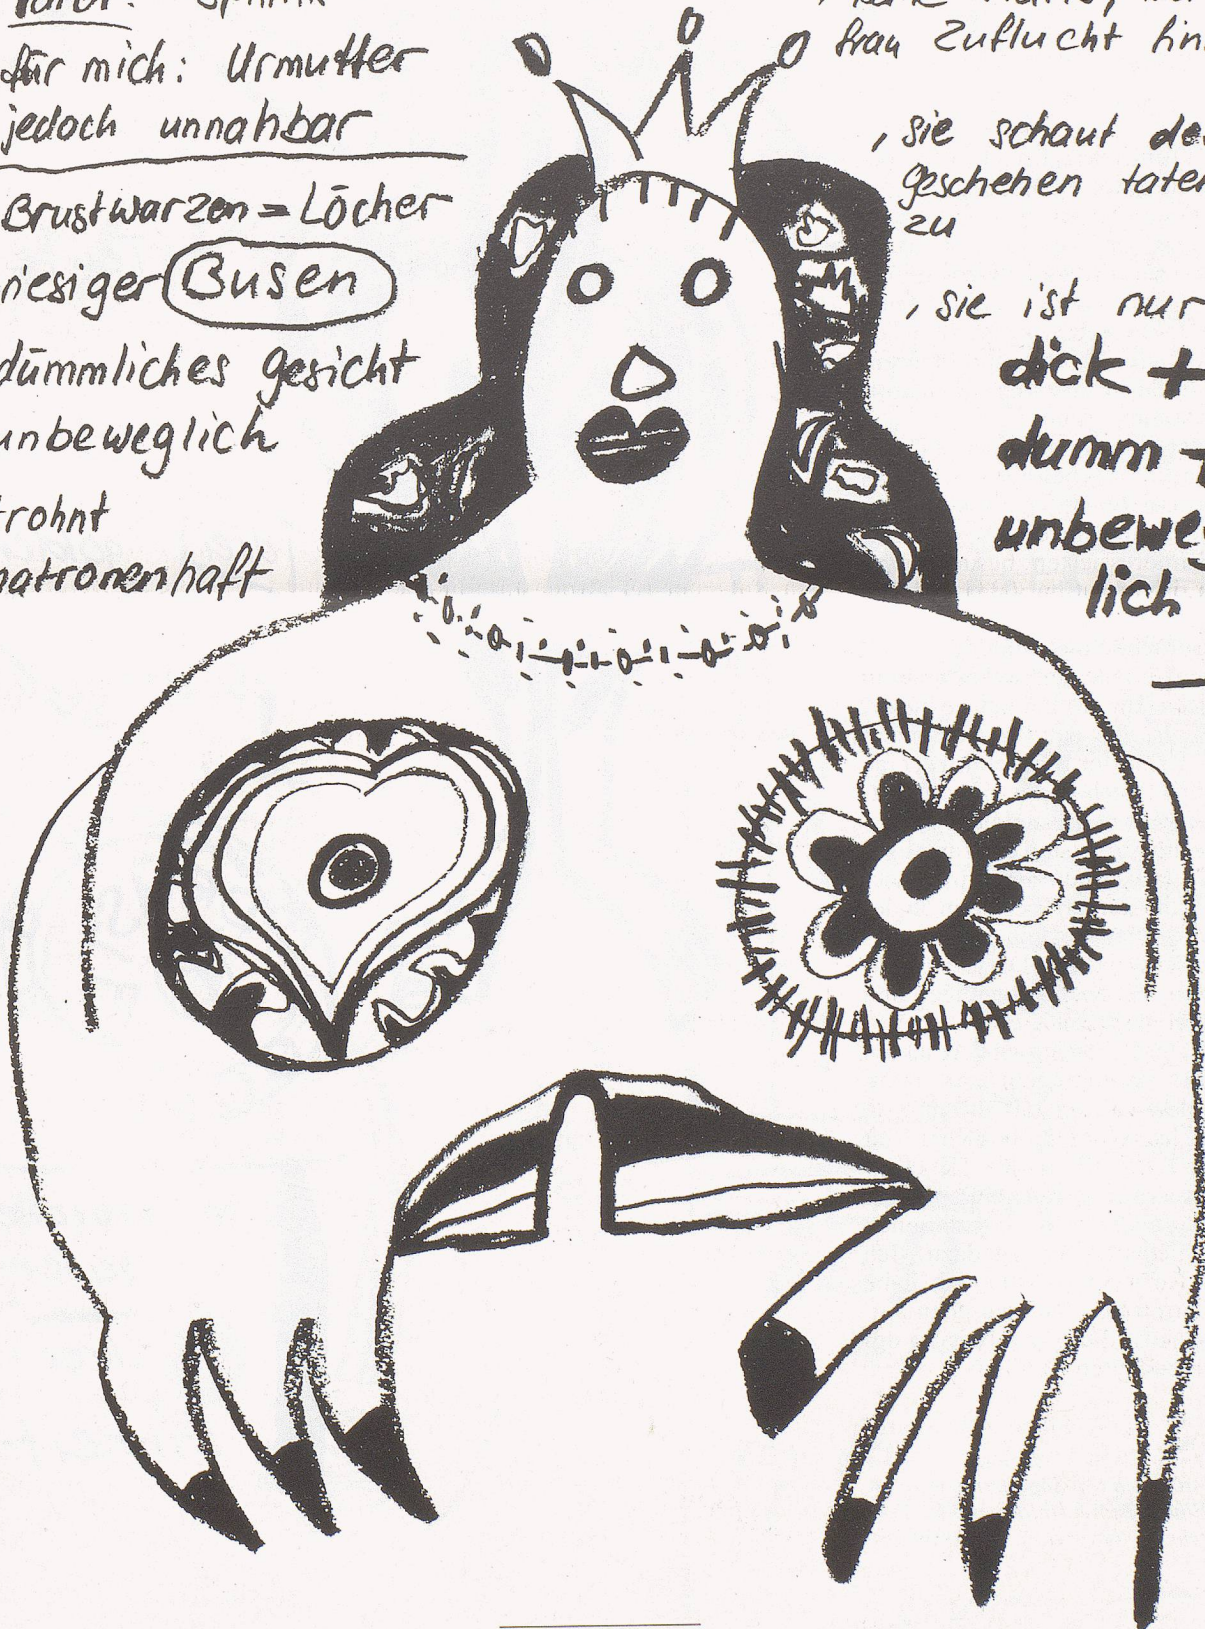 für mich: Urmutter
jedoch unnahbar
Brustwarzen = Löcher
riesiger Busen
dümmliches Gesicht
unbeweglich
trohnt
matronenhaft
frau Zuflucht fin
, sie schaut de
geschehen taten
zu
, sie ist nur
dick +
dumm +
unbeweg
lich